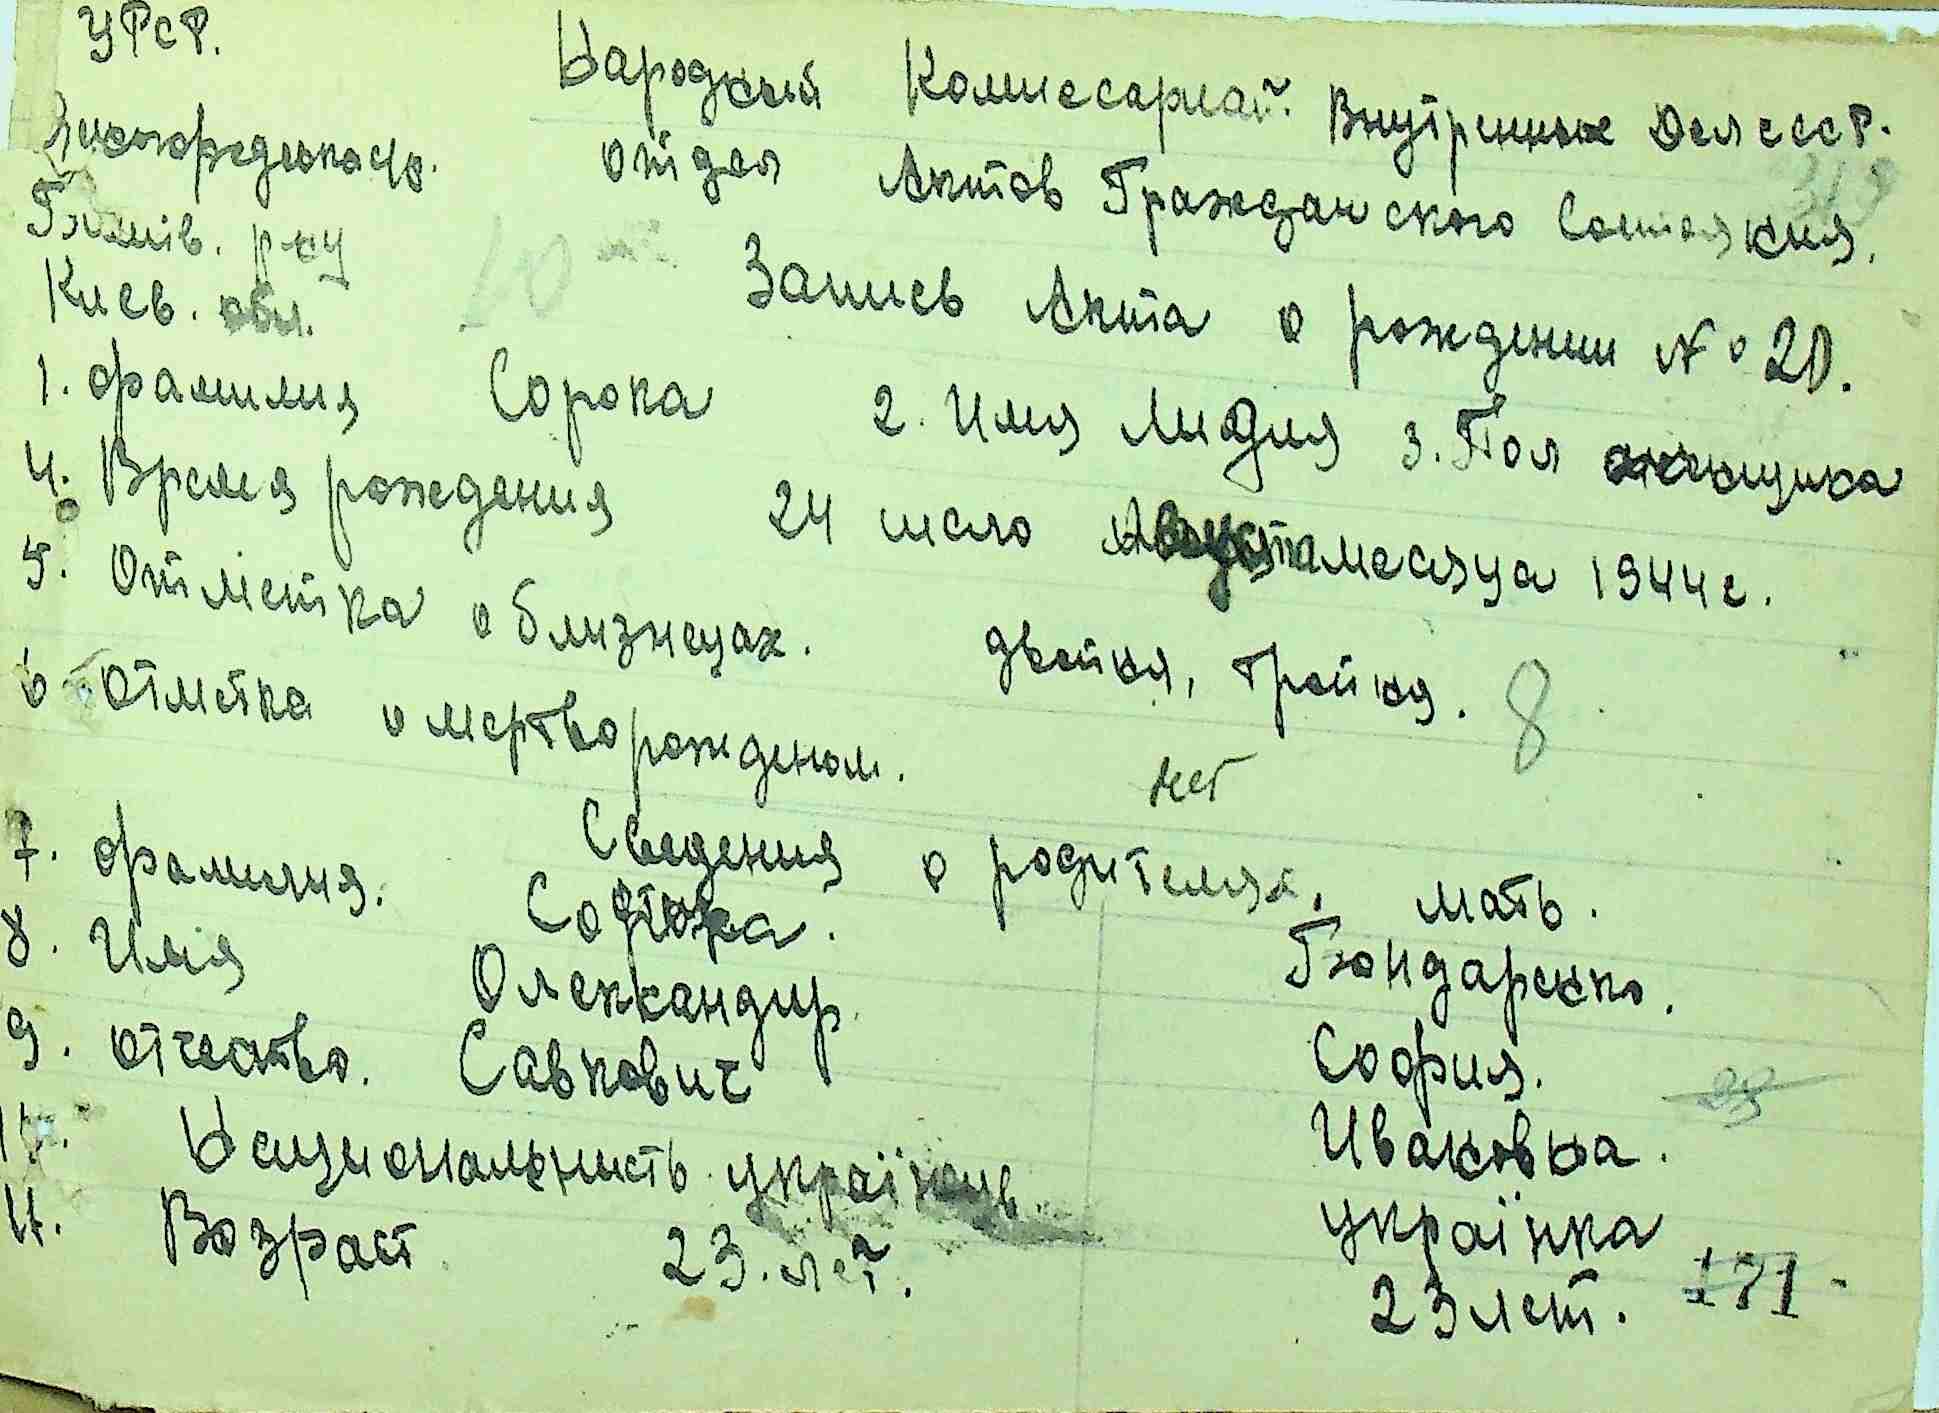 УРСР.
Народный Комиссариат Внутренных Дел СССР.
отдел Актов Гражданского Состояния.
р-ну
Киев. обл.
Запись Акта о рождении № 20.
1. Фамилия Сорока 2. Имя Лидия 3. Пол женщина
4. Время рождения 24 число Августа месяца 1944 г.
5. Отметка о близнецах. двойня, тройня. 8
6 Отметка о мертворожденом. нет
Сведения о родителях.
мать.
7. Фамилия. Сорока. Бондаренко.
8. Имя Олександр. София.
9. отчество. Савкович Ивановна.
10. Национальность українець українка
11. Возраст 23. лет. 23 лет.
171